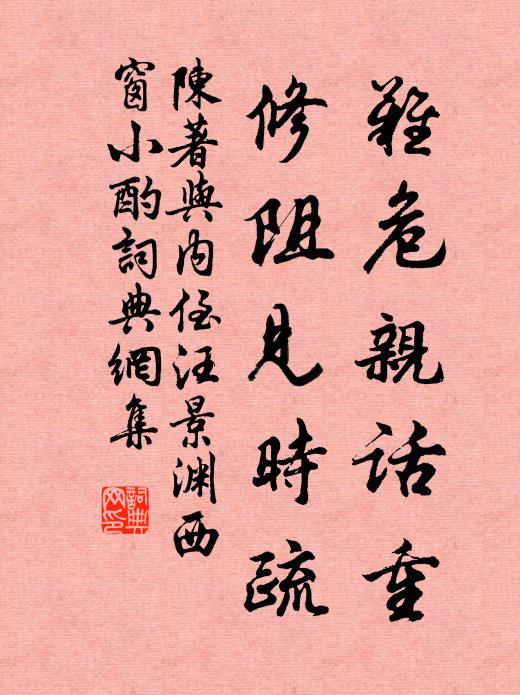 難危親話重
修阻見時疏
陳著與内侄汪景渊西
窗小酌詞典網集
詞典网印